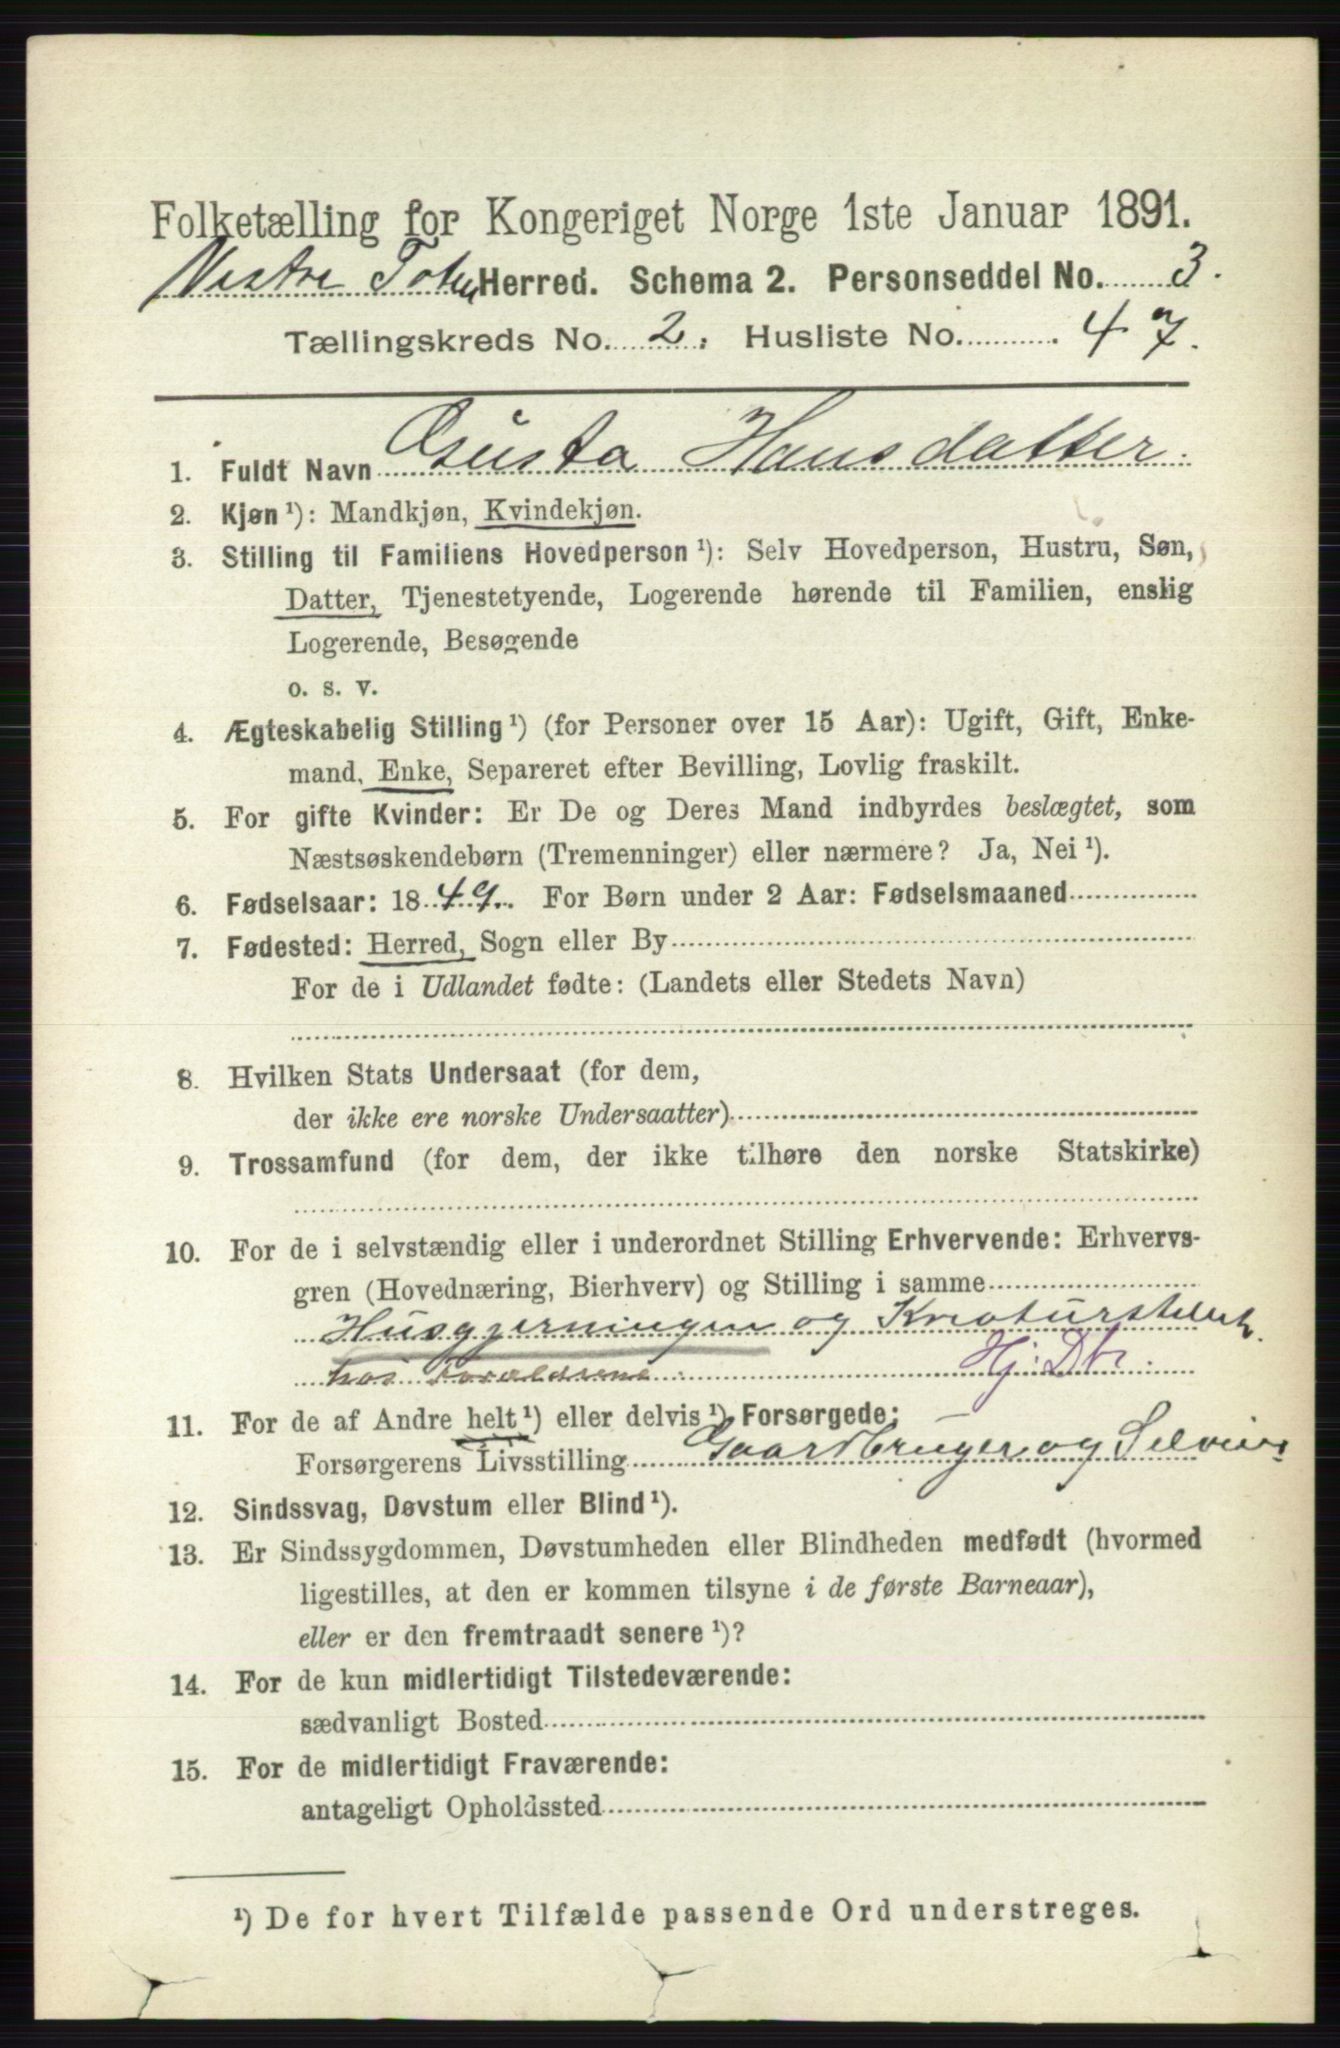 Folketælling for Kongeriget Norge 1ste Januar 1891.
Vestre Toten Herred. Schema 2. Personseddel No. 3.
Tællingskreds No. 2. Husliste No. 47.
1. Fuldt Navn Gusta Hansdatter.
2. Kjøn ¹): Mandkjøn, Kvindekjøn.
3. Stilling til Familiens Hovedperson ¹): Selv Hovedperson, Hustru, Søn,
Datter, Tjenestetyende, Logerende hørende til Familien, enslig
Logerende, Besøgende
o. s. v.
4. Ægteskabelig Stilling ¹) (for Personer over 15 Aar): Ugift, Gift, Enke-
mand, Enke, Separeret efter Bevilling, Lovlig fraskilt.
5. For gifte Kvinder: Er De og Deres Mand indbyrdes beslægtet, som
Næstsøskendebørn (Tremenninger) eller nærmere? Ja, Nei ¹).
6. Fødselsaar: 1849. For Børn under 2 Aar: Fødselsmaaned
7. Fødested: Herred, Sogn eller By
For de i Udlandet fødte: (Landets eller Stedets Navn)
8. Hvilken Stats Undersaat (for dem,
der ikke ere norske Undersaatter)
9. Trossamfund (for dem, der ikke tilhøre den norske Statskirke)
10. For de i selvstændig eller i underordnet Stilling Erhvervende: Erhvervs-
gren (Hovednæring, Bierhverv) og Stilling i samme
Husgjerningen og Kreaturstellet
hos Forældrene. Hj. Dtr.
11. For de af Andre helt ¹) eller delvis ¹) Forsørgede:
Forsørgerens Livsstilling Gaardbruger og Selveier
12. Sindssvag, Døvstum eller Blind ¹).
13. Er Sindssygdommen, Døvstumheden eller Blindheden medfødt (hvormed
ligestilles, at den er kommen tilsyne i de første Barneaar),
eller er den fremtraadt senere ¹)?
14. For de kun midlertidigt Tilstedeværende:
sædvanligt Bosted
15. For de midlertidigt Fraværende:
antageligt Opholdssted
¹) De for hvert Tilfælde passende Ord understreges.